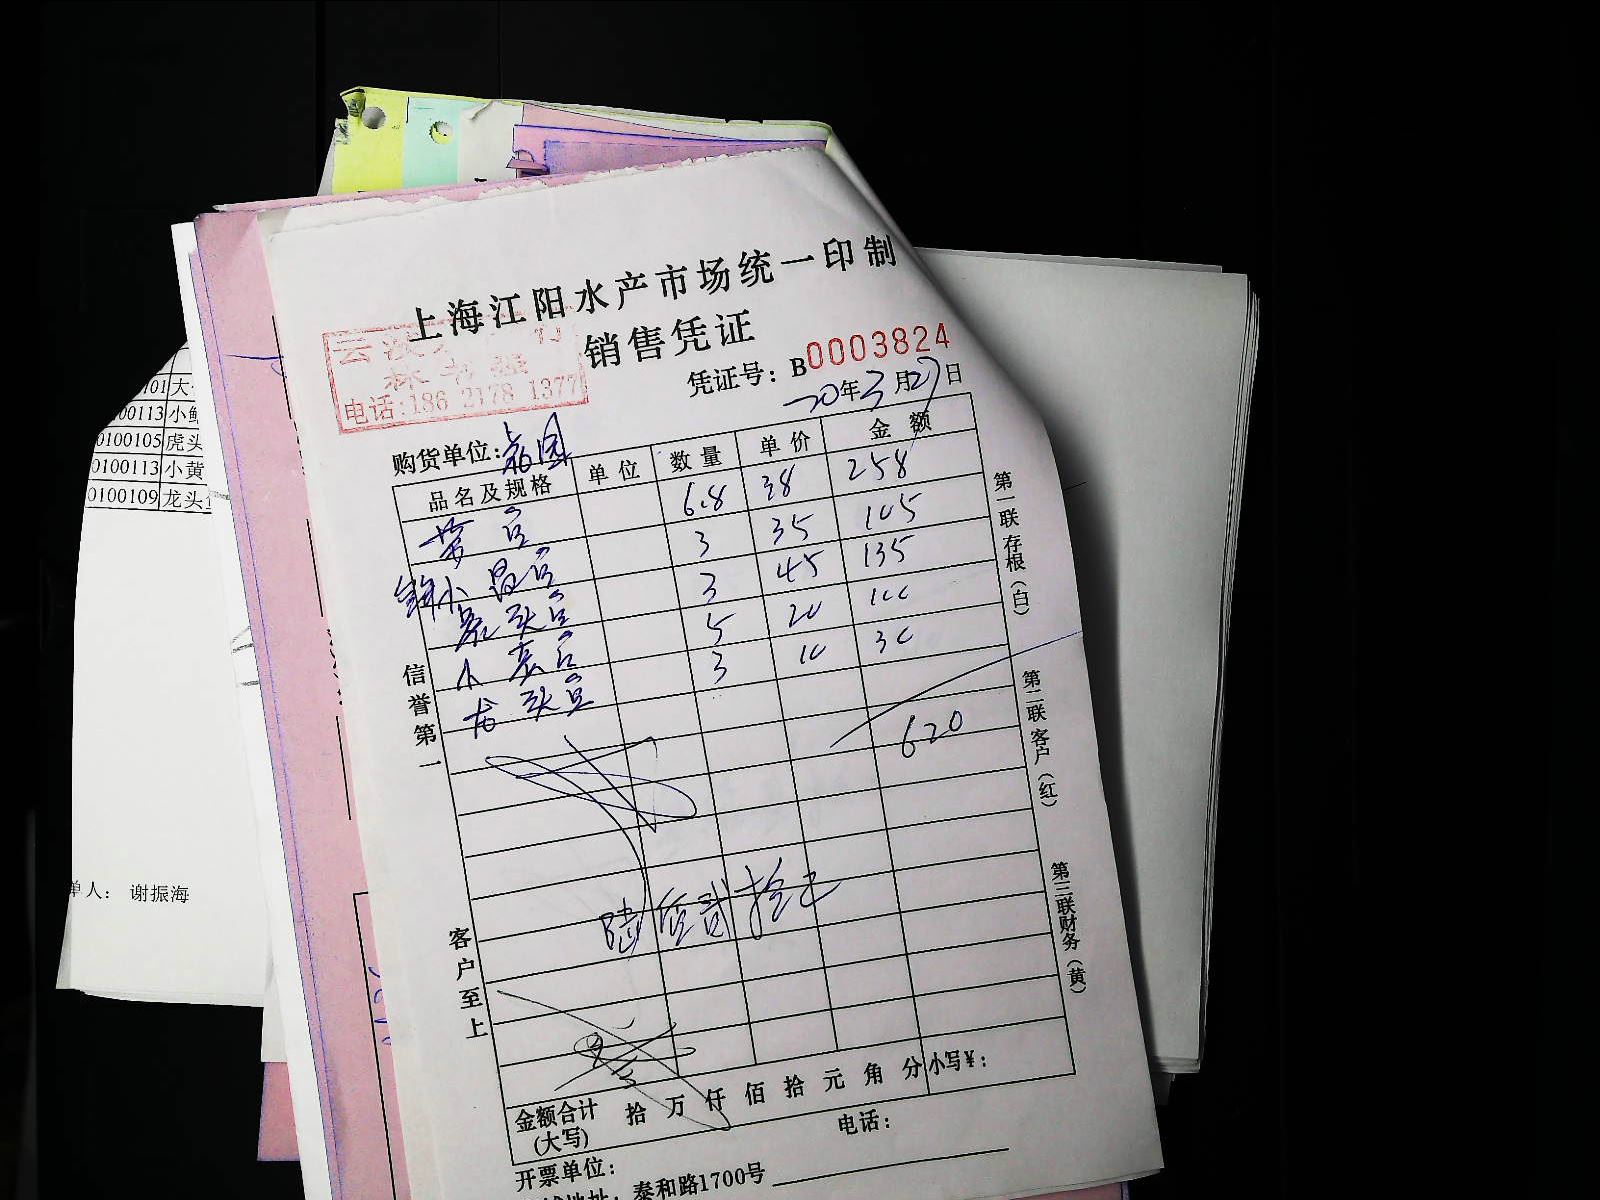 上海江阳水产市场统一印制
销售凭证
凭证号：B0003824
电话:186 2178 1377
20年3月27日
购货单位:
品名及规格 单位 数量 单价 金额
6.8 38 258
3 35 105
3 45 135
5 20 100
小黄 3 10 30
龙头
620
陆佰贰拾元
信誉第一
客户至上
第一联存根（白）
第二联客户（红）
第三联财务（黄）
金额合计(大写) 拾万仟佰拾元角分 小写¥:
电话：
开票单位：
地址：泰和路1700号
101 大
00113 小
0100105 虎头
0100113 小黄
0100109 龙头
单人： 谢振海